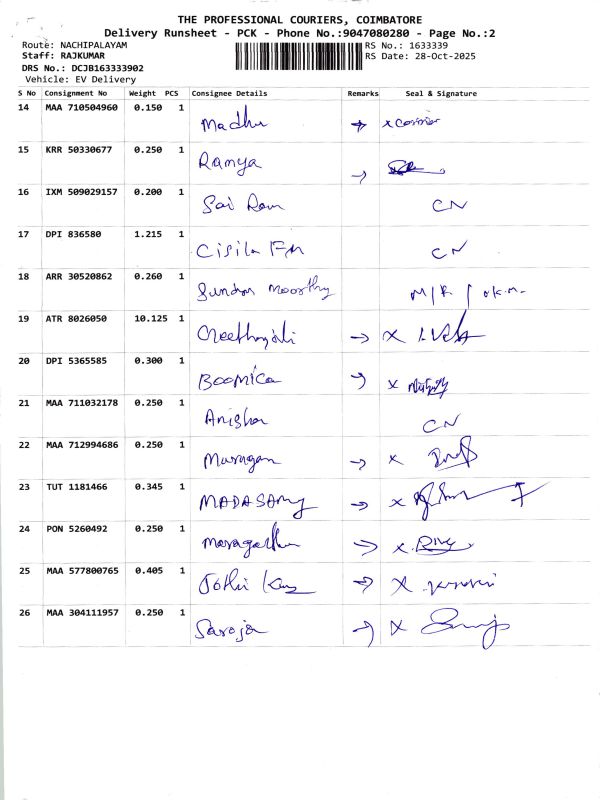 THE PROFESSIONAL COURIERS, COIMBATORE
Delivery Runsheet - PCK - Phone No.:9047080280 - Page No.:2
Route: NACHIPALAYAM RS No.: 1633339
Staff: RAJKUMAR RS Date: 28-Oct-2025
DRS No.: DCJB163333902
Vehicle: EV Delivery
S No Consignment No Weight PCS Consignee Details Remarks Seal & Signature
14 MAA 710504960 0.150 1 Madhu → x
15 KRR 50330677 0.250 1 Ramya →
16 IXM 509029157 0.200 1 Sai Ram CN
17 DPI 836580 1.215 1 CN
18 ARR 30520862 0.260 1 Sundra Moorthy
19 ATR 8026050 10.125 1 → x
20 DPI 5365585 0.300 1 Boomica → x
21 MAA 711032178 0.250 1 Anisha CN
22 MAA 712994686 0.250 1 Murugan → x
23 TUT 1181466 0.345 1 MADASAMY → x
24 PON 5260492 0.250 1 → x
25 MAA 577800765 0.405 1 Jothi → x
26 MAA 304111957 0.250 1 Saroja → x